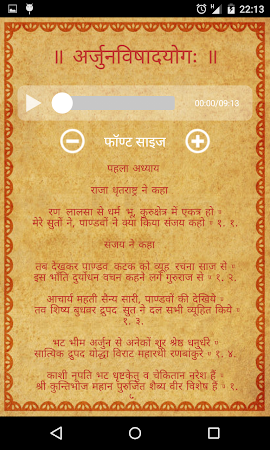 22:13
॥ अर्जुनविषादयोगः ॥
00:00/09:13
फॉण्ट साइज
पहला अध्याय
राजा धृतराष्ट्र ने कहा
रण लालसा से धर्म भू, कुरुक्षेत्र में एकत्र हो ॰
मेरे सुतों ने, पाण्डवों ने क्या किया संजय कहो ॰ १. १.
संजय ने कहा
तब देखकर पाण्डव कटक को व्यूह रचना साज से ॰
इस भाँति दुर्योधन वचन कहने लगे गुरुराज से ॰ १. २.
आचार्य महती सैन्य सारी, पाण्डवों की देखिये ॰
तव शिष्य बुधवर द्रुपद सुत ने दल सभी व्यूहित किये
॰ १. ३.
भट भीम अर्जुन से अनेकों शूर श्रेष्ठ धनुर्धरे ॰
सात्यिक द्रुपद योद्धा विराट महारथी रणबांकुरे ॰ १. ४.
काशी नृपति भट धृष्टकेतु व चेकितान नरेश हैं ॰
श्री कुन्तिभोज महान पुरुजित शैब्य वीर विशेष हैं ॰ १.
५.